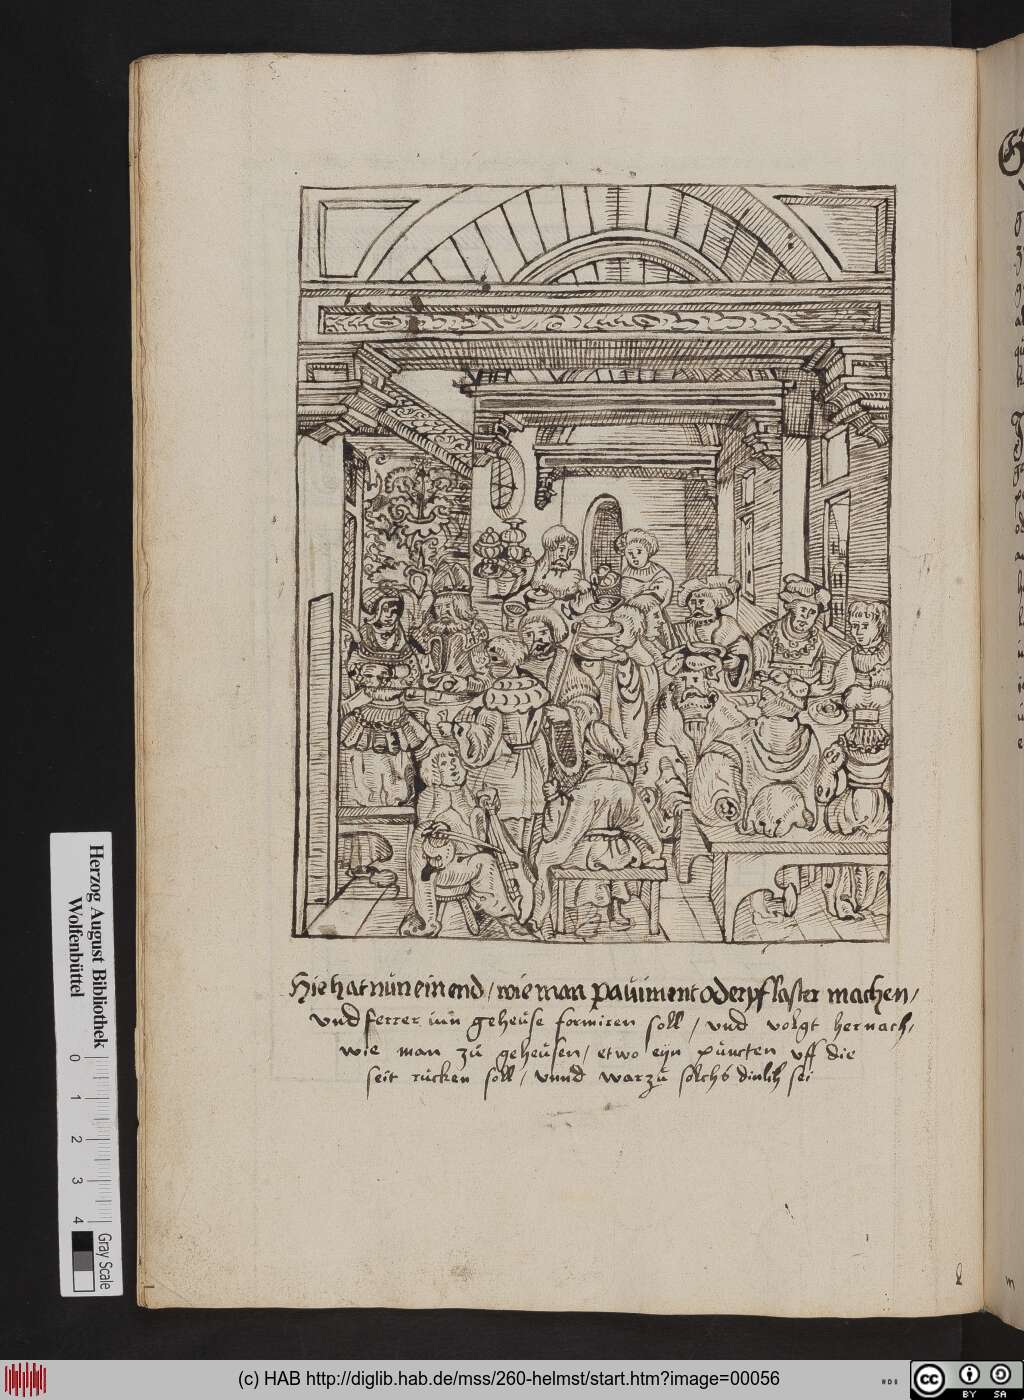 Hie hat nůn ein end / wie man pauiment oder pflaster machen /
vnd ferrer inn geheüse formiren soll / vnd volgt hernach /
wie man zů geheüsen / etwo eyn püncten vff die
seit rücken soll / vnnd warzů solchs dinlich sei
Herzog August Bibliothek
Wolfenbüttel
0 1 2 3 4
Gray Scale
(c) HAB http://diglib.hab.de/mss/260-helmst/start.htm?image=00056
cc BY SA